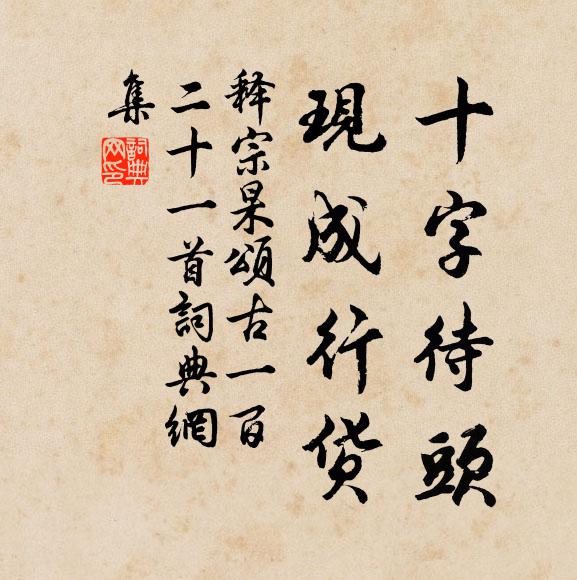 十字待頭
現成行货
释宗杲頌古一百
二十一首詞典網
集
詞典
网印